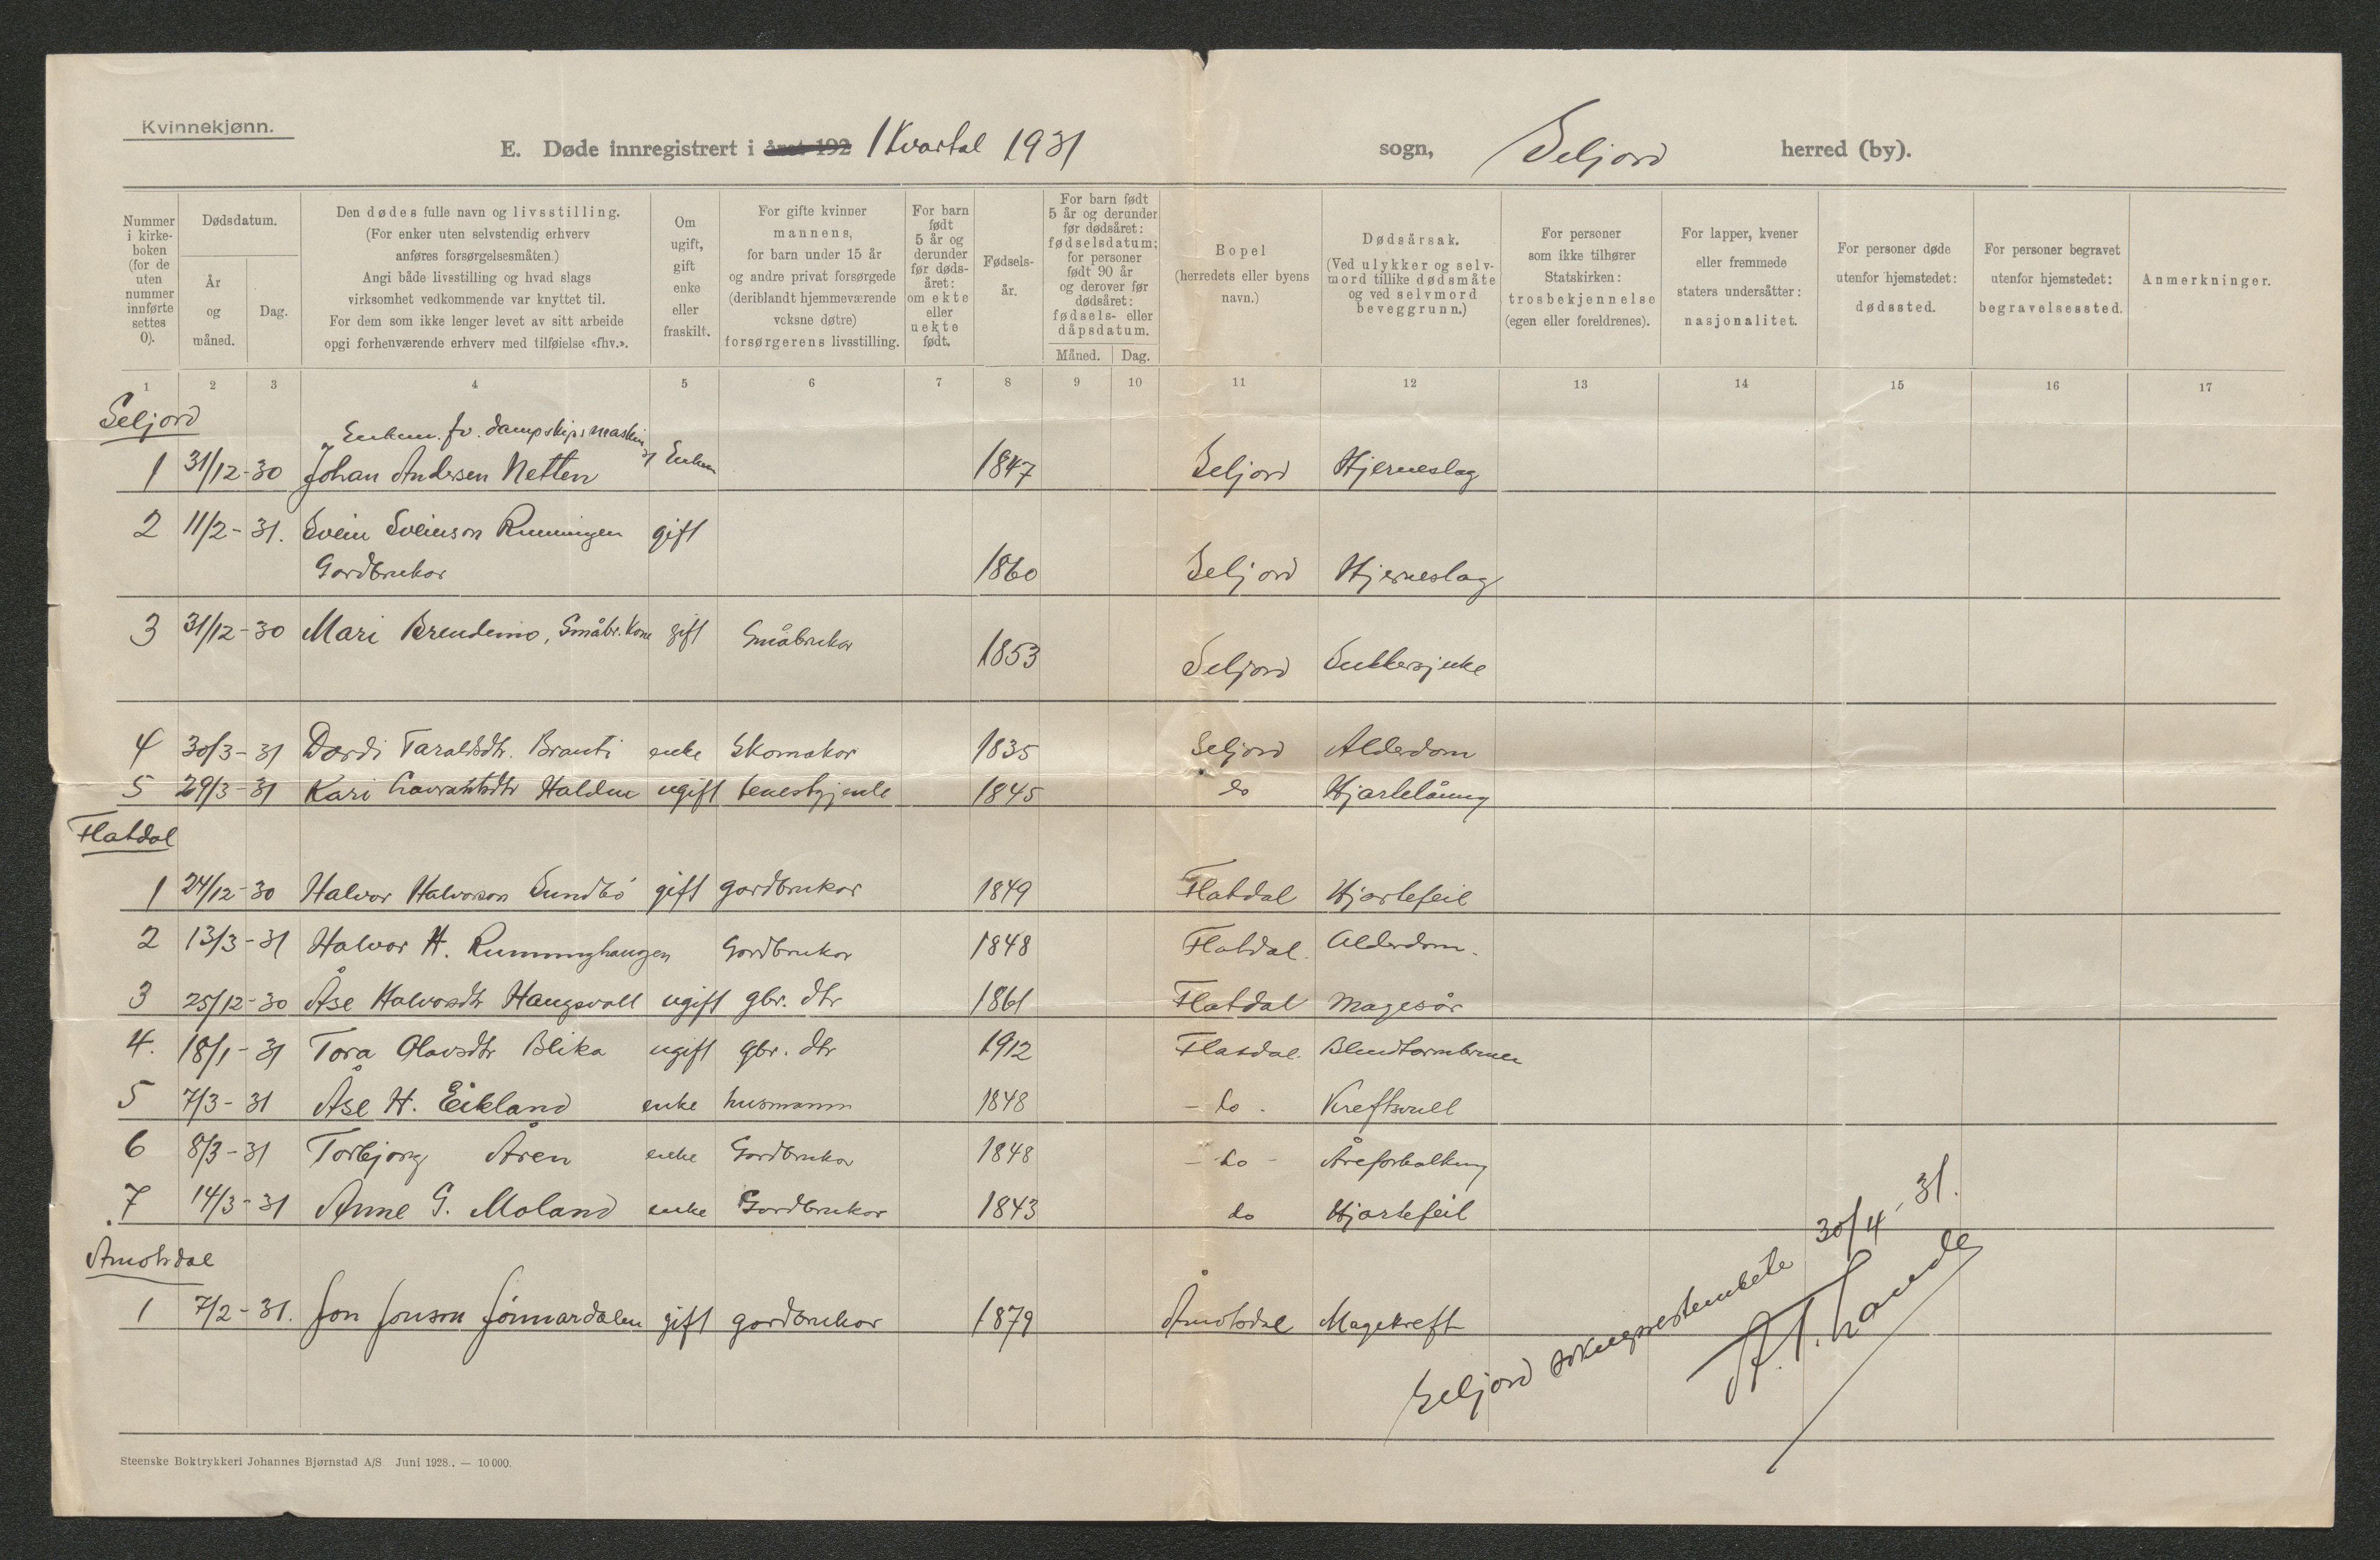 Kvinnekjønn.
E. Døde innregistrert i året 192 1 Kvartal 1931 sogn, Seljord herred (by).
Nummer i kirkeboken (for de uten nummer innførte settes 0).
Dødsdatum.
År og måned.
Dag.
Den dødes fulle navn og livsstilling.
(For enker uten selvstendig erhverv
anføres forsørgelsesmåten.)
Angi både livsstilling og hvad slags
virksomhet vedkommende var knyttet til.
For dem som ikke lenger levet av sitt arbeide
opgi forhenværende erhverv med tilføielse «fhv.».
Om ugift, gift enke eller fraskilt.
For gifte kvinner
mannens,
for barn under 15 år
og andre privat forsørgede
(deriblandt hjemmeværende
voksne døtre)
forsørgerens livsstilling.
For barn født 5 år og derunder før dødsåret: om ekte eller uekte født.
Fødselsår.
For barn født
5 år og derunder
før dødsåret:
fødselsdatum;
for personer
født 90 år
og derover før
dødsåret:
fødsels- eller
dåpsdatum.
Måned. Dag.
Bopel
(herredets eller byens
navn.)
Dødsårsak.
(Ved ulykker og selv-
mord tillike dødsmåte
og ved selvmord
beveggrunn.)
For personer
som ikke tilhører
Statskirken:
trosbekjennelse
(egen eller foreldrenes).
For lapper, kvener
eller fremmede
staters undersåtter:
nasjonalitet.
For personer døde
utenfor hjemstedet:
dødssted.
For personer begravet
utenfor hjemstedet:
begravelsessted.
Anmerkninger.
1 2 3 4 5 6 7 8 9 10 11 12 13 14 15 16 17
Seljord
Enkem. fv. dampskipsmaskin
1 31/12-30 Johan Andersen Netten Enkem 1847 Seljord Hjerneslag
2 11/2-31. Svein Sveinson Runningen gift
Gardbrukar 1860 Seljord Hjerneslag
3 31/12-30 Mari Brendemo, Småbr. kone gift Småbrukar 1853 Seljord Sukkersjuke
4 30/3-31 Dordi Taraldsdtr. Brauti enke Skomakar 1835 Seljord Alderdom
5 29/3-31 Kari Halden ugift tenestgjente 1845 do Hjartelåming
Flatdal
1 24/12-30 Halvor Halvorson Sundbö gift gardbrukar 1849 Flatdal Hjartefeil
2 13/3-31 Halvor H. Runninghaugen Gardbrukar 1848 Flatdal. Alderdom.
3 25/12-30 Åse Halvorsdtr Haugsvall ugift gbr. dtr 1861 Flatdal Magesår
4. 18/1-31 Tora Olavsdtr Blika ugift gbr. dtr 1912 Flatdal.
5 7/3-31 Åse H. Eikland enke husmann 1848 - do - Kreftsvull
6 8/3-31 Torbjørg Åren enke Gardbrukar 1848 - do - Åreforkalking
7 14/3-31 Anne G. Moland enke Gardbrukar 1843 do Hjartefeil
Åmotsdal
1 7/2-31. Jon Jonson Jönnardalen gift gardbrukar 1879 Åmotsdal Magekreft
Seljord sokneprestembete 30/4-31.
Steenske Boktrykkeri Johannes Bjørnstad A/S Juni 1928. — 10 000.